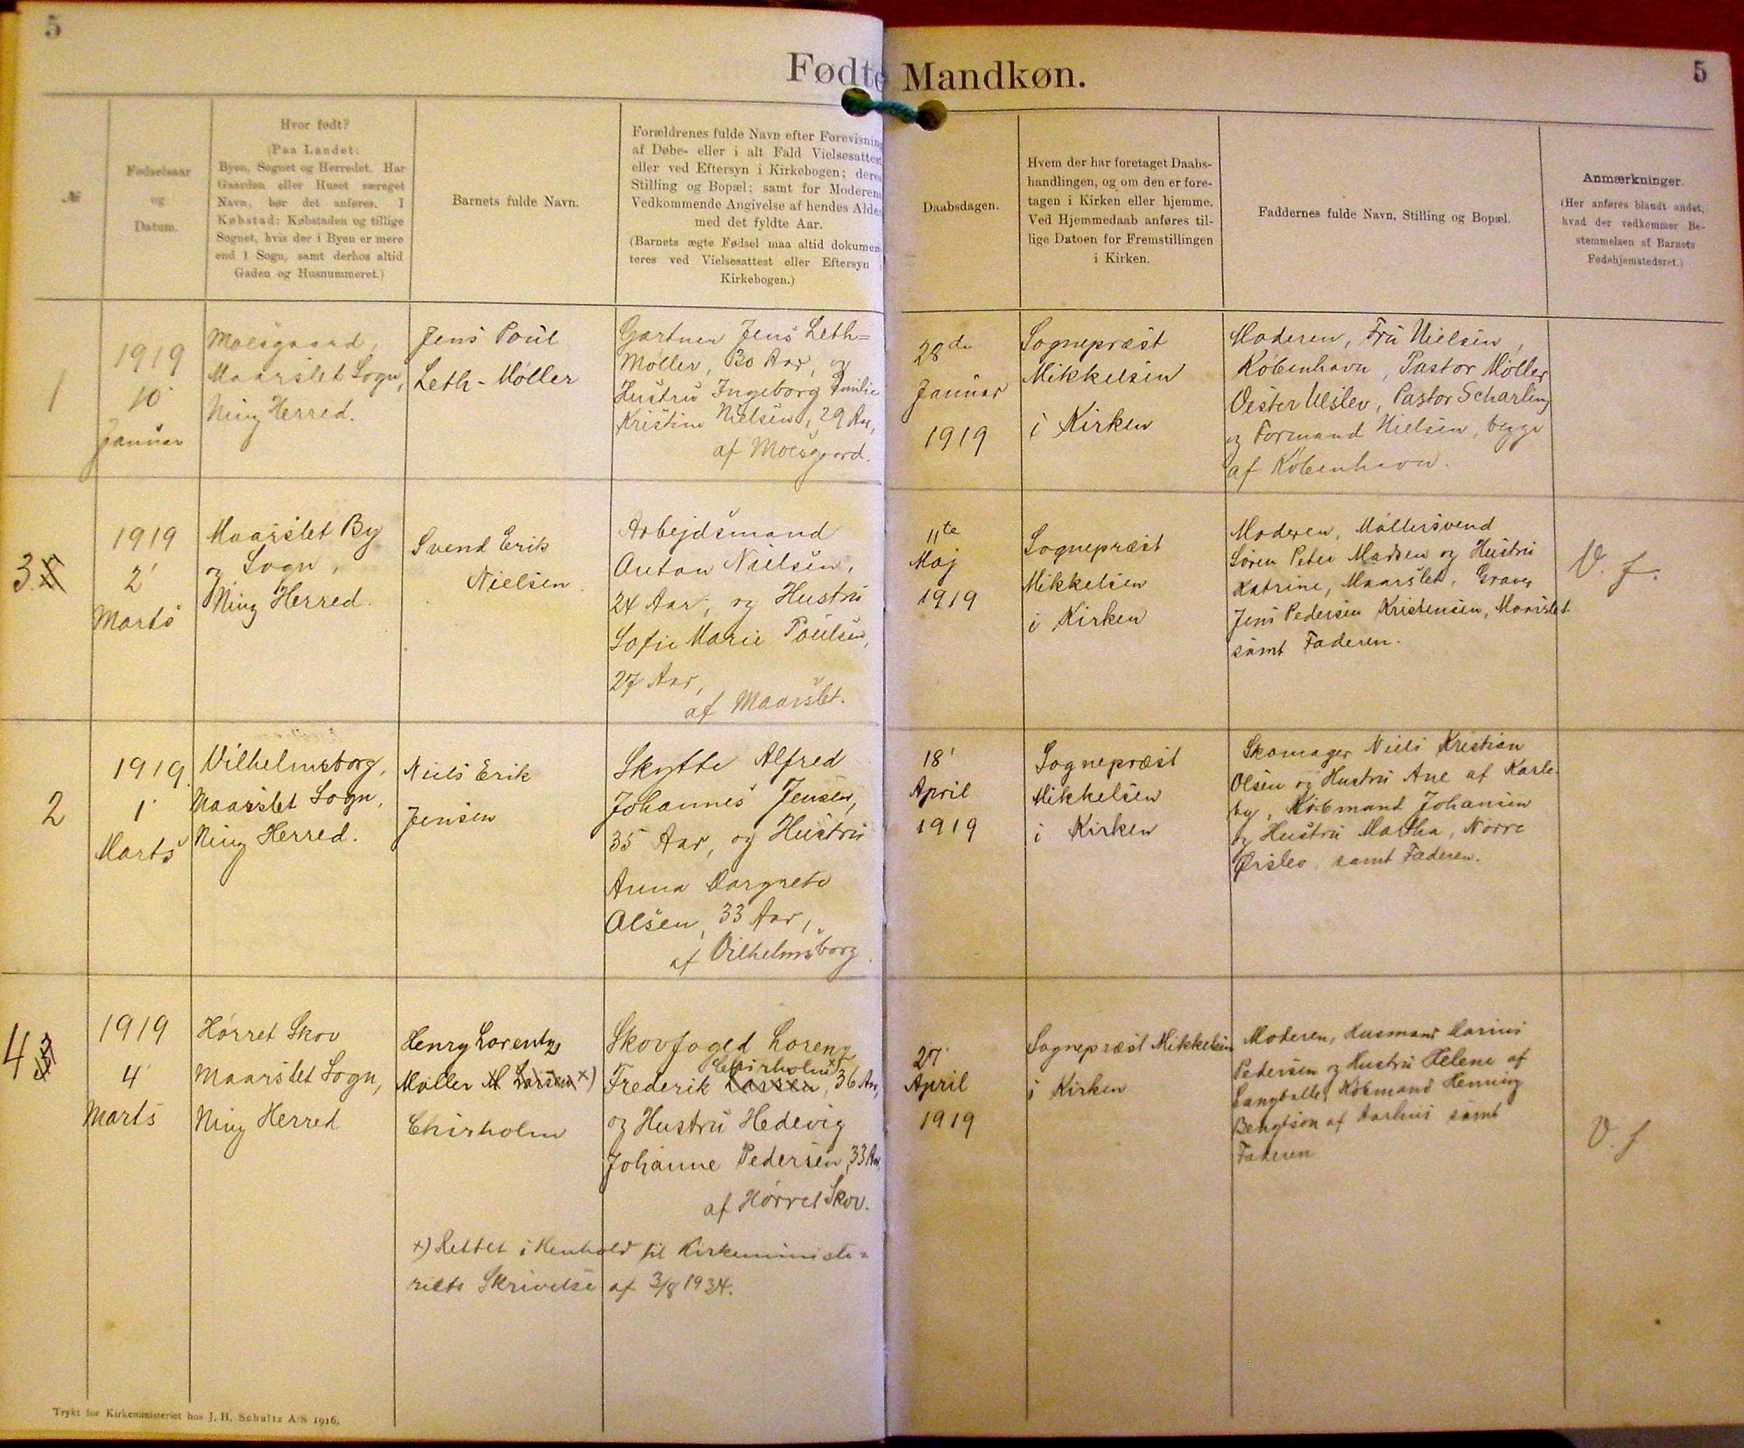 5
5
Fødte Mandkøn.
№
Fødselsaar
og
Datum.
Hvor født?
(Paa Landet:
Byen, Sognet og Herredet. Har
Gaarden eller Huset særeget
Navn, bør det anføres. I
Købstad: Købstaden og tillige
Sognet, hvis der i Byen er mere
end 1 Sogn, samt derhos altid
Gaden og Husnummeret.)
Barnets fulde Navn.
Forældrenes fulde Navn efter Forevisning
af Døbe- eller i alt Fald Vielsesattest
eller ved Eftersyn i Kirkebogen; deres
Stilling og Bopæl; samt for Moderens
Vedkommende Angivelse af hendes Alder
med det fyldte Aar.
(Barnets ægte Fødsel maa altid dokumen-
teres ved Vielsesattest eller Eftersyn i
Kirkebogen.)
Daabsdagen.
Hvem der har foretaget Daabs-
handlingen, og om den er fore-
tagen i Kirken eller hjemme.
Ved Hjemmedaab anføres til-
lige Datoen for Fremstillingen
i Kirken.
Faddernes fulde Navn, Stilling og Bopæl.
Anmærkninger.
(Her anføres blandt andet,
hvad der vedkommer Be-
stemmelsen af Barnets
Fødehjemstedsret.)
1
1919
10'
Januar
Moesgaard,
Maarslet Sogn,
Ning Herred.
Jens Poul
Leth-Møller
Gartner Jens Leth=
Møller, 30 Aar, og
Hustru Ingeborg Emilie
Kristine Nielsen, 29 Aar,
af Moesgaard.
28de
Januar
1919
Sognepræst
Mikkelsen
i Kirken
Moderen, Fru Nielsen,
København, Pastor Møller
Oester Ulslev, Pastor Scharling
og Formand Nielsen, begge
af København.
3
1919
2'
Marts
Maarslet By
og Sogn,
Ning Herred.
Svend Erik
Nielsen
Arbejdsmand
Anton Nielsen,
24 Aar, og Hustru
Sofie Marie Poulsen,
27 Aar,
af Maarslet.
11te
Maj
1919
Sognepræst
Mikkelsen
i Kirken
Moderen, Møllersvend
Søren Peter Madsen og Hustru
Katrine, Maarslet, Graver
Jens Pedersen Kristensen, Maarslet
samt Faderen.
V. f.
2
1919
1'
Marts
Vilhelmsborg,
Maarslet Sogn,
Ning Herred.
Niels Erik
Jensen
Skytte Alfred
Johannes Jensen,
35 Aar, og Hustru
Anna Margrete
Olsen, 33 Aar,
af Vilhelmsborg.
18'
April
1919
Sognepræst
Mikkelsen
i Kirken
Skomager Niels Kristian
Olsen og Hustru Ane af Karle-
by, Købmand Johansen
og Hustru Martha, Nørre
Ørslev samt Faderen.
4
1919
4'
Marts
Hørret Skov
Maarslet Sogn,
Ning Herred
Henry Lorentz
Møller M Larsen x)
Ehirholm
Skovfoged Lorenz
Ehirholm
Frederik Larsen, 36 Aar,
og Hustru Hedevig
Johanne Pedersen, 33 Aar
af Hørret Skov.
x) Rettet i Henhold til Kirkeministe=
riets Skrivelse af 3/8 1934.
27'
April
1919
Sognepræst Mikkelsen
i Kirken
Moderen, Husmand Marius
Pedersen og Hustru Helene af
Langballe, Købmand Henning
Bengtson af Aarhus samt
Faderen
V. f
Trykt for Kirkeministeriet hos J. H. Schultz A/S 1916.